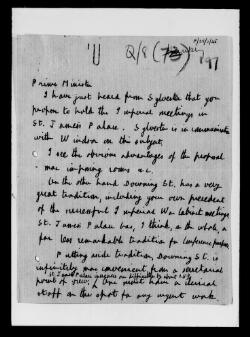 Q/8 (73)
197
Prime Minister
I have just heard from Sylvester that you
propose to hold the Imperial meetings in
St. James's Palace. Sylvester is in communication
with Windsor on the subject.
I see the obvious advantages of the proposal
imposing rooms &c.
On the other hand Downing St. has a very
great tradition, including your own precedent
of the successful Imperial War Cabinet meetings
St. James's Palace has, I think, on the whole, a
far less remarkable tradition for conference purposes.
Putting aside tradition, Downing St. is
infinitely more convenient from a secretarial
point of view; One must have a clerical
staff on the spot for any urgent work